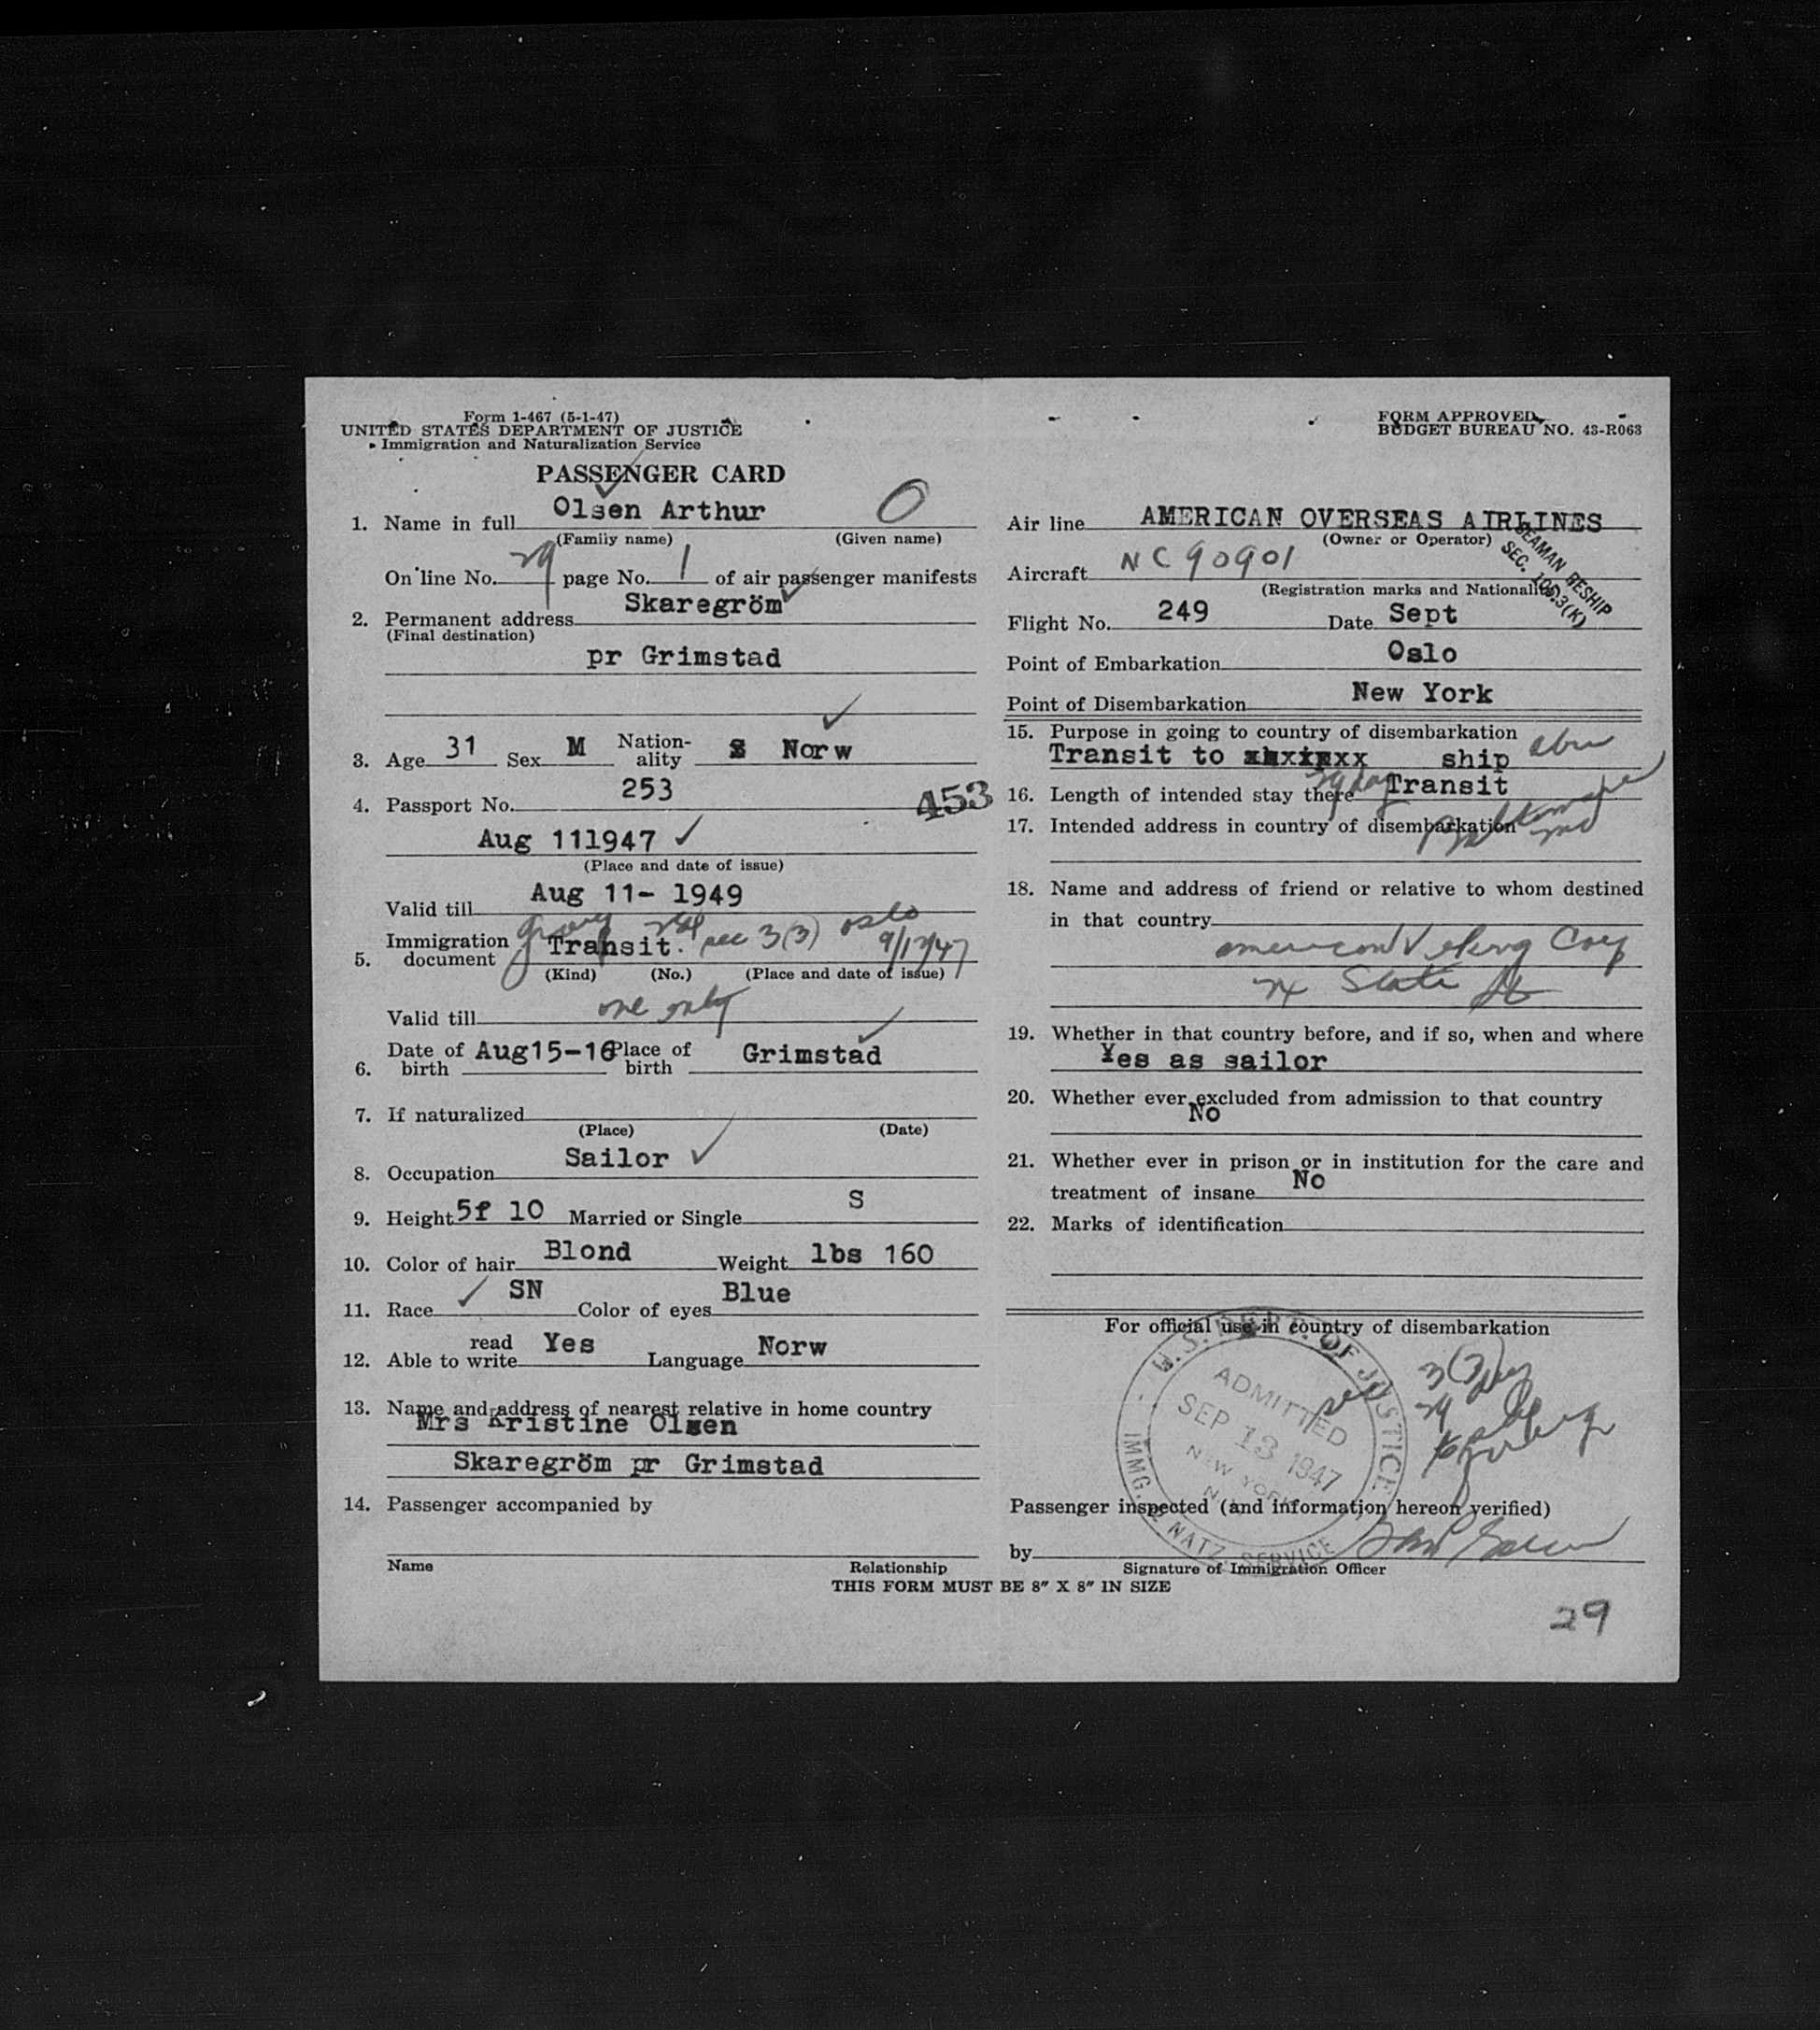 Form 1-467 (5-1-47)
UNITED STATES DEPARTMENT OF JUSTICE
Immigration and Naturalization Service
PASSENGER CARD
1. Name in full Olsen Arthur O
(Family name) (Given name)
On line No. 29 page No. 1 of air passenger manifests
2. Permanent address Skaregröm
(Final destination)
pr Grimstad
3. Age 31 Sex M Nation-ality S Norw
4. Passport No. 253 453
Aug 111947
(Place and date of issue)
Valid till Aug 11- 1949
5. Immigration document Transit. sec 3(3) oslo 9/12/47
(Kind) (No.) (Place and date of issue)
Valid till one only
6. Date of birth Aug15-16 Place of birth Grimstad
7. If naturalized
(Place) (Date)
8. Occupation Sailor
9. Height 5f 10 Married or Single S
10. Color of hair Blond Weight lbs 160
11. Race SN Color of eyes Blue
12. Able to read write Yes Language Norw
13. Name and address of nearest relative in home country
Mrs Kristine Olsen
Skaregröm pr Grimstad
14. Passenger accompanied by
Name Relationship
THIS FORM MUST BE 8" X 8" IN SIZE
FORM APPROVED
BUDGET BUREAU NO. 43-R063
Air line AMERICAN OVERSEAS AIRLINES
(Owner or Operator)
SEAMAN RESHIP
SEC. 105.3(K)
Aircraft NC90901
(Registration marks and Nationality)
Flight No. 249 Date Sept
Point of Embarkation Oslo
Point of Disembarkation New York
15. Purpose in going to country of disembarkation
Transit to ship
16. Length of intended stay there 29 day Transit
17. Intended address in country of disembarkation Baltimore md
18. Name and address of friend or relative to whom destined
in that country
american Viking Corp
24 State St
19. Whether in that country before, and if so, when and where
Yes as sailor
20. Whether ever excluded from admission to that country
No
21. Whether ever in prison or in institution for the care and
treatment of insane No
22. Marks of identification
For official use in country of disembarkation
U.S. DEPT. OF JUSTICE
ADMITTED
SEP 13 1947
NEW YORK
N.Y.
IMMG. & NATZ. SERVICE
sec 3(3)
29
Passenger inspected (and information hereon verified)
by
Signature of Immigration Officer
29